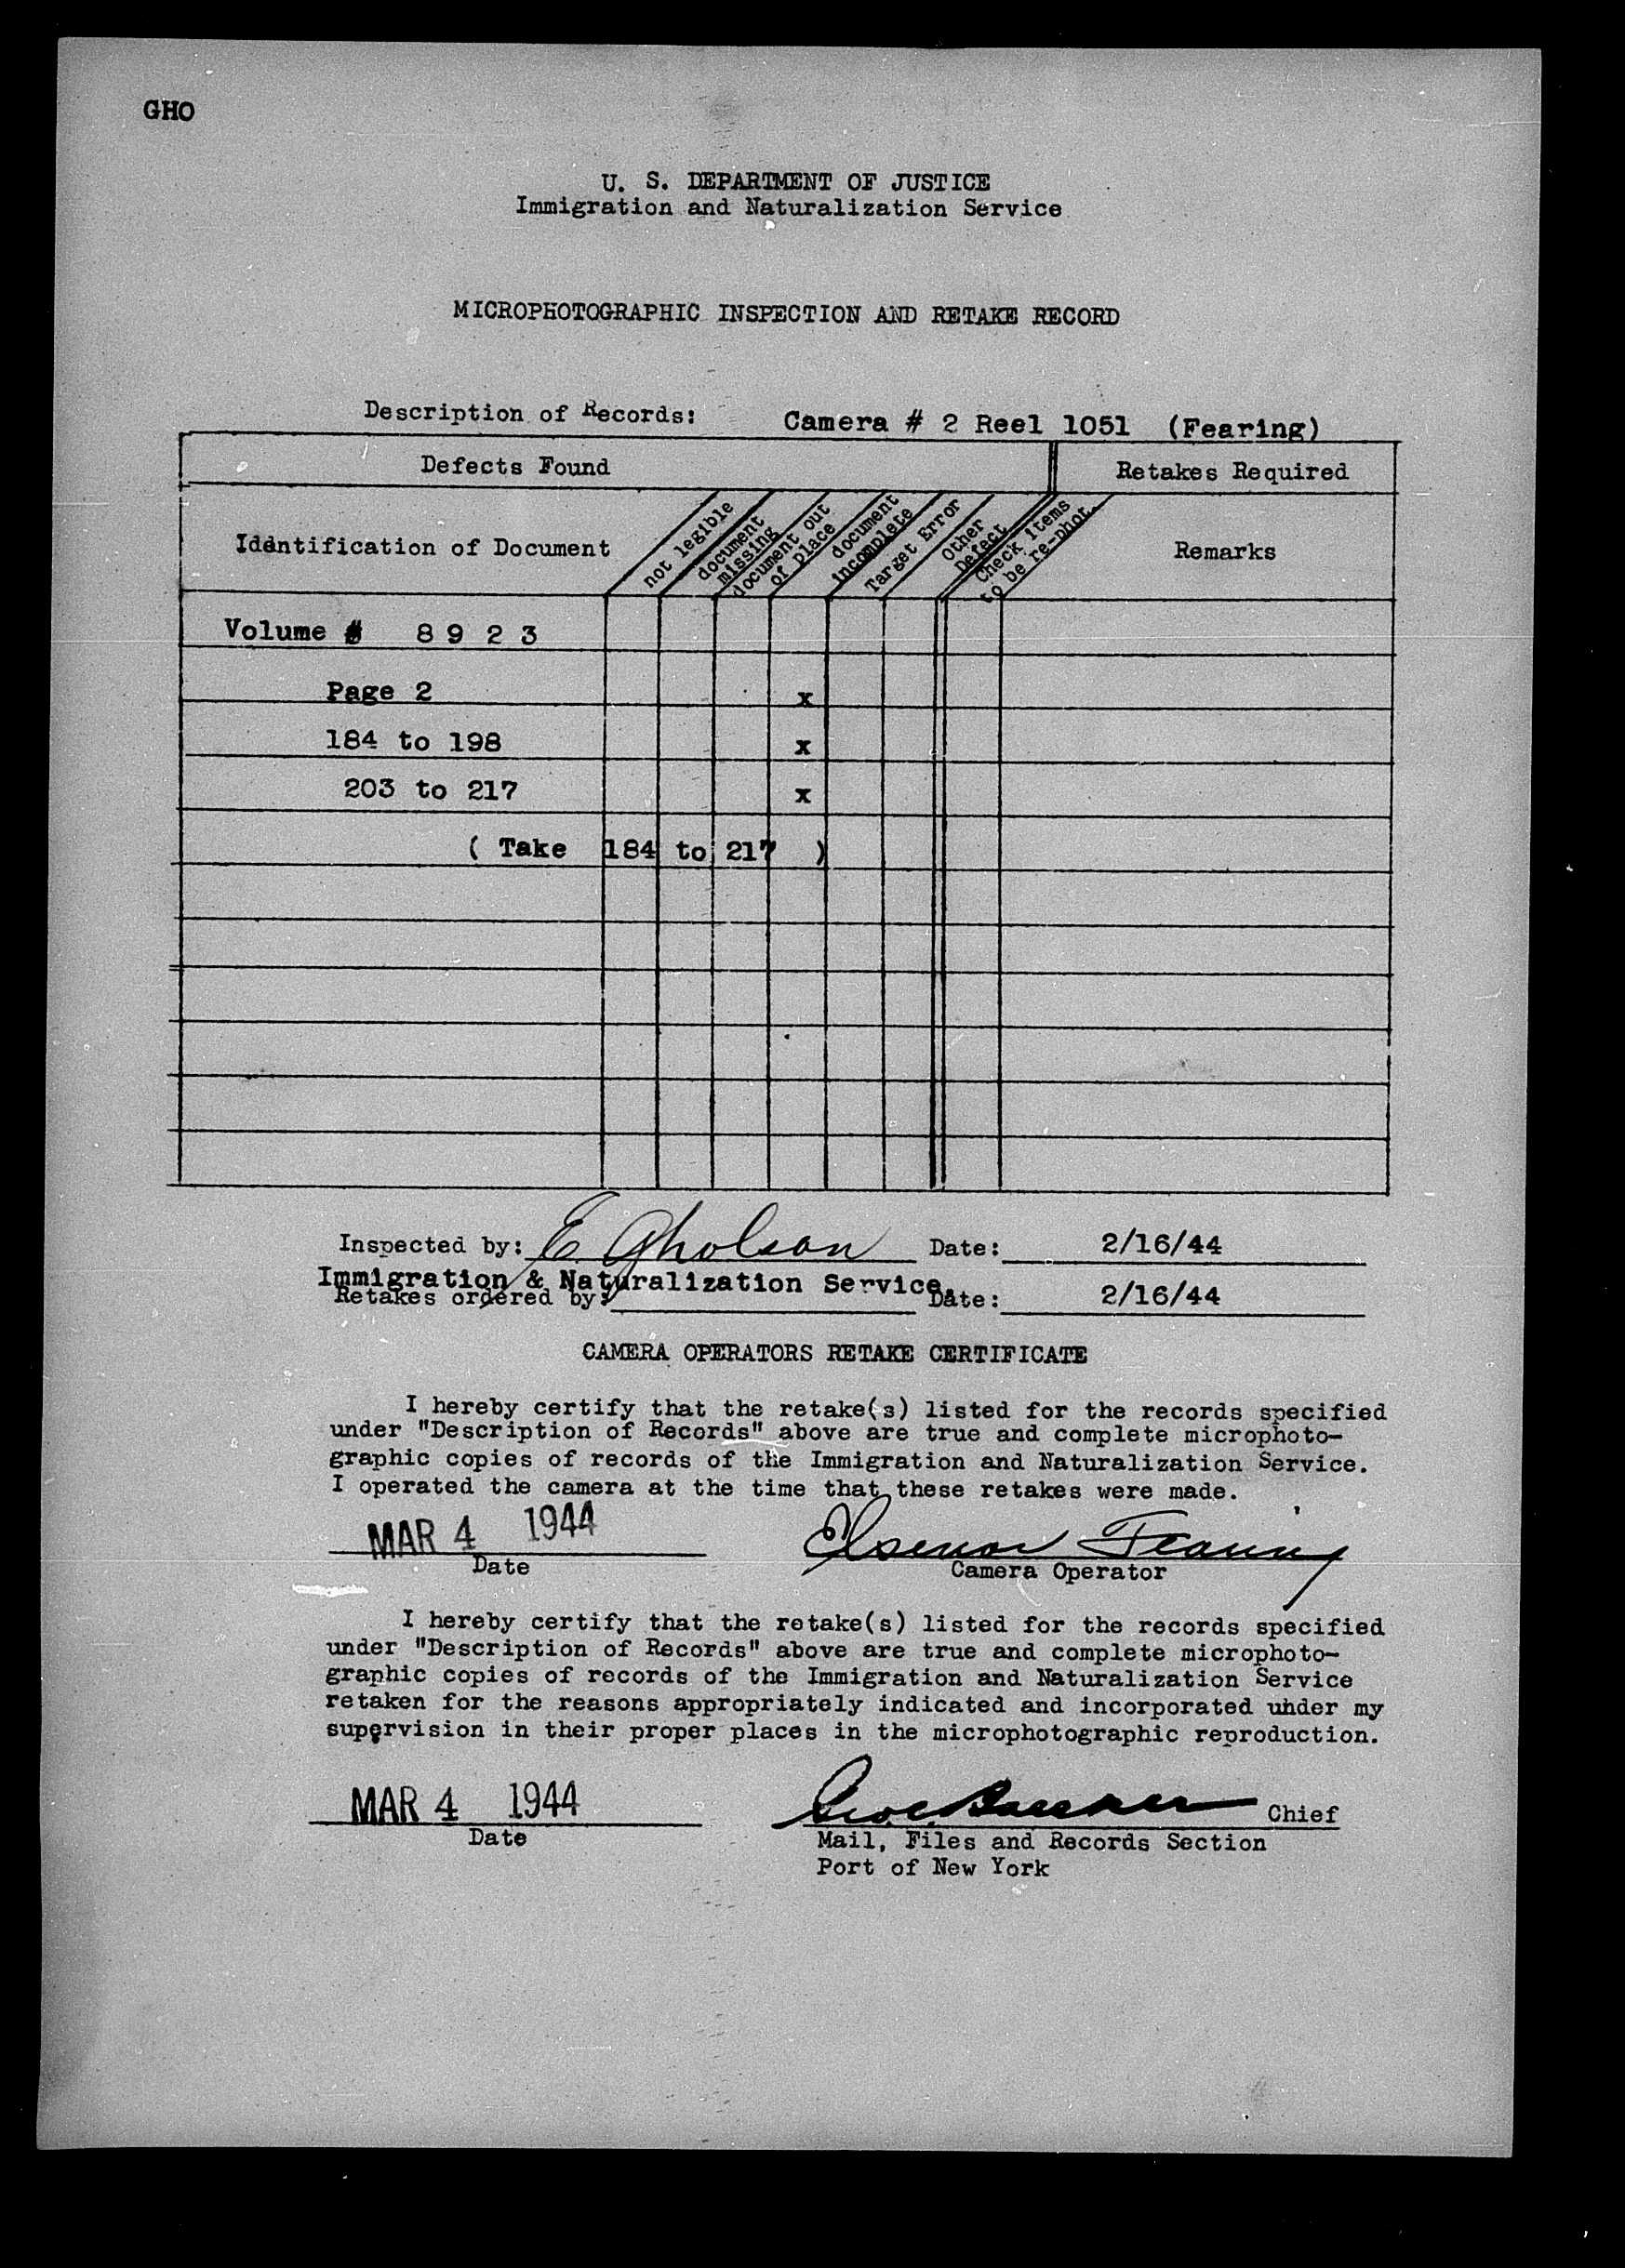 GHO
U. S. DEPARTMENT OF JUSTICE
Immigration and Naturalization Service
MICROPHOTOGRAPHIC INSPECTION AND RETAKE RECORD
Description of Records: Camera # 2 Reel 1051 (Fearing)
Defects Found Retakes Required
Identification of Document not legible document missing document out of place document incomplete Target Error Other Defect Check items to be re-phot. Remarks
Volume # 8 9 2 3
Page 2 x
184 to 198 x
203 to 217 x
( Take 184 to 217 )
Inspected by: E. Gholson Date: 2/16/44
Immigration & Naturalization Service.
Retakes ordered by: Date: 2/16/44
CAMERA OPERATORS RETAKE CERTIFICATE
I hereby certify that the retake(s) listed for the records specified
under "Description of Records" above are true and complete microphoto-
graphic copies of records of the Immigration and Naturalization Service.
I operated the camera at the time that these retakes were made.
MAR 4 1944 Fearing
Date Camera Operator
I hereby certify that the retake(s) listed for the records specified
under "Description of Records" above are true and complete microphoto-
graphic copies of records of the Immigration and Naturalization Service
retaken for the reasons appropriately indicated and incorporated under my
supervision in their proper places in the microphotographic reproduction.
MAR 4 1944 Chief
Date Mail, Files and Records Section
Port of New York